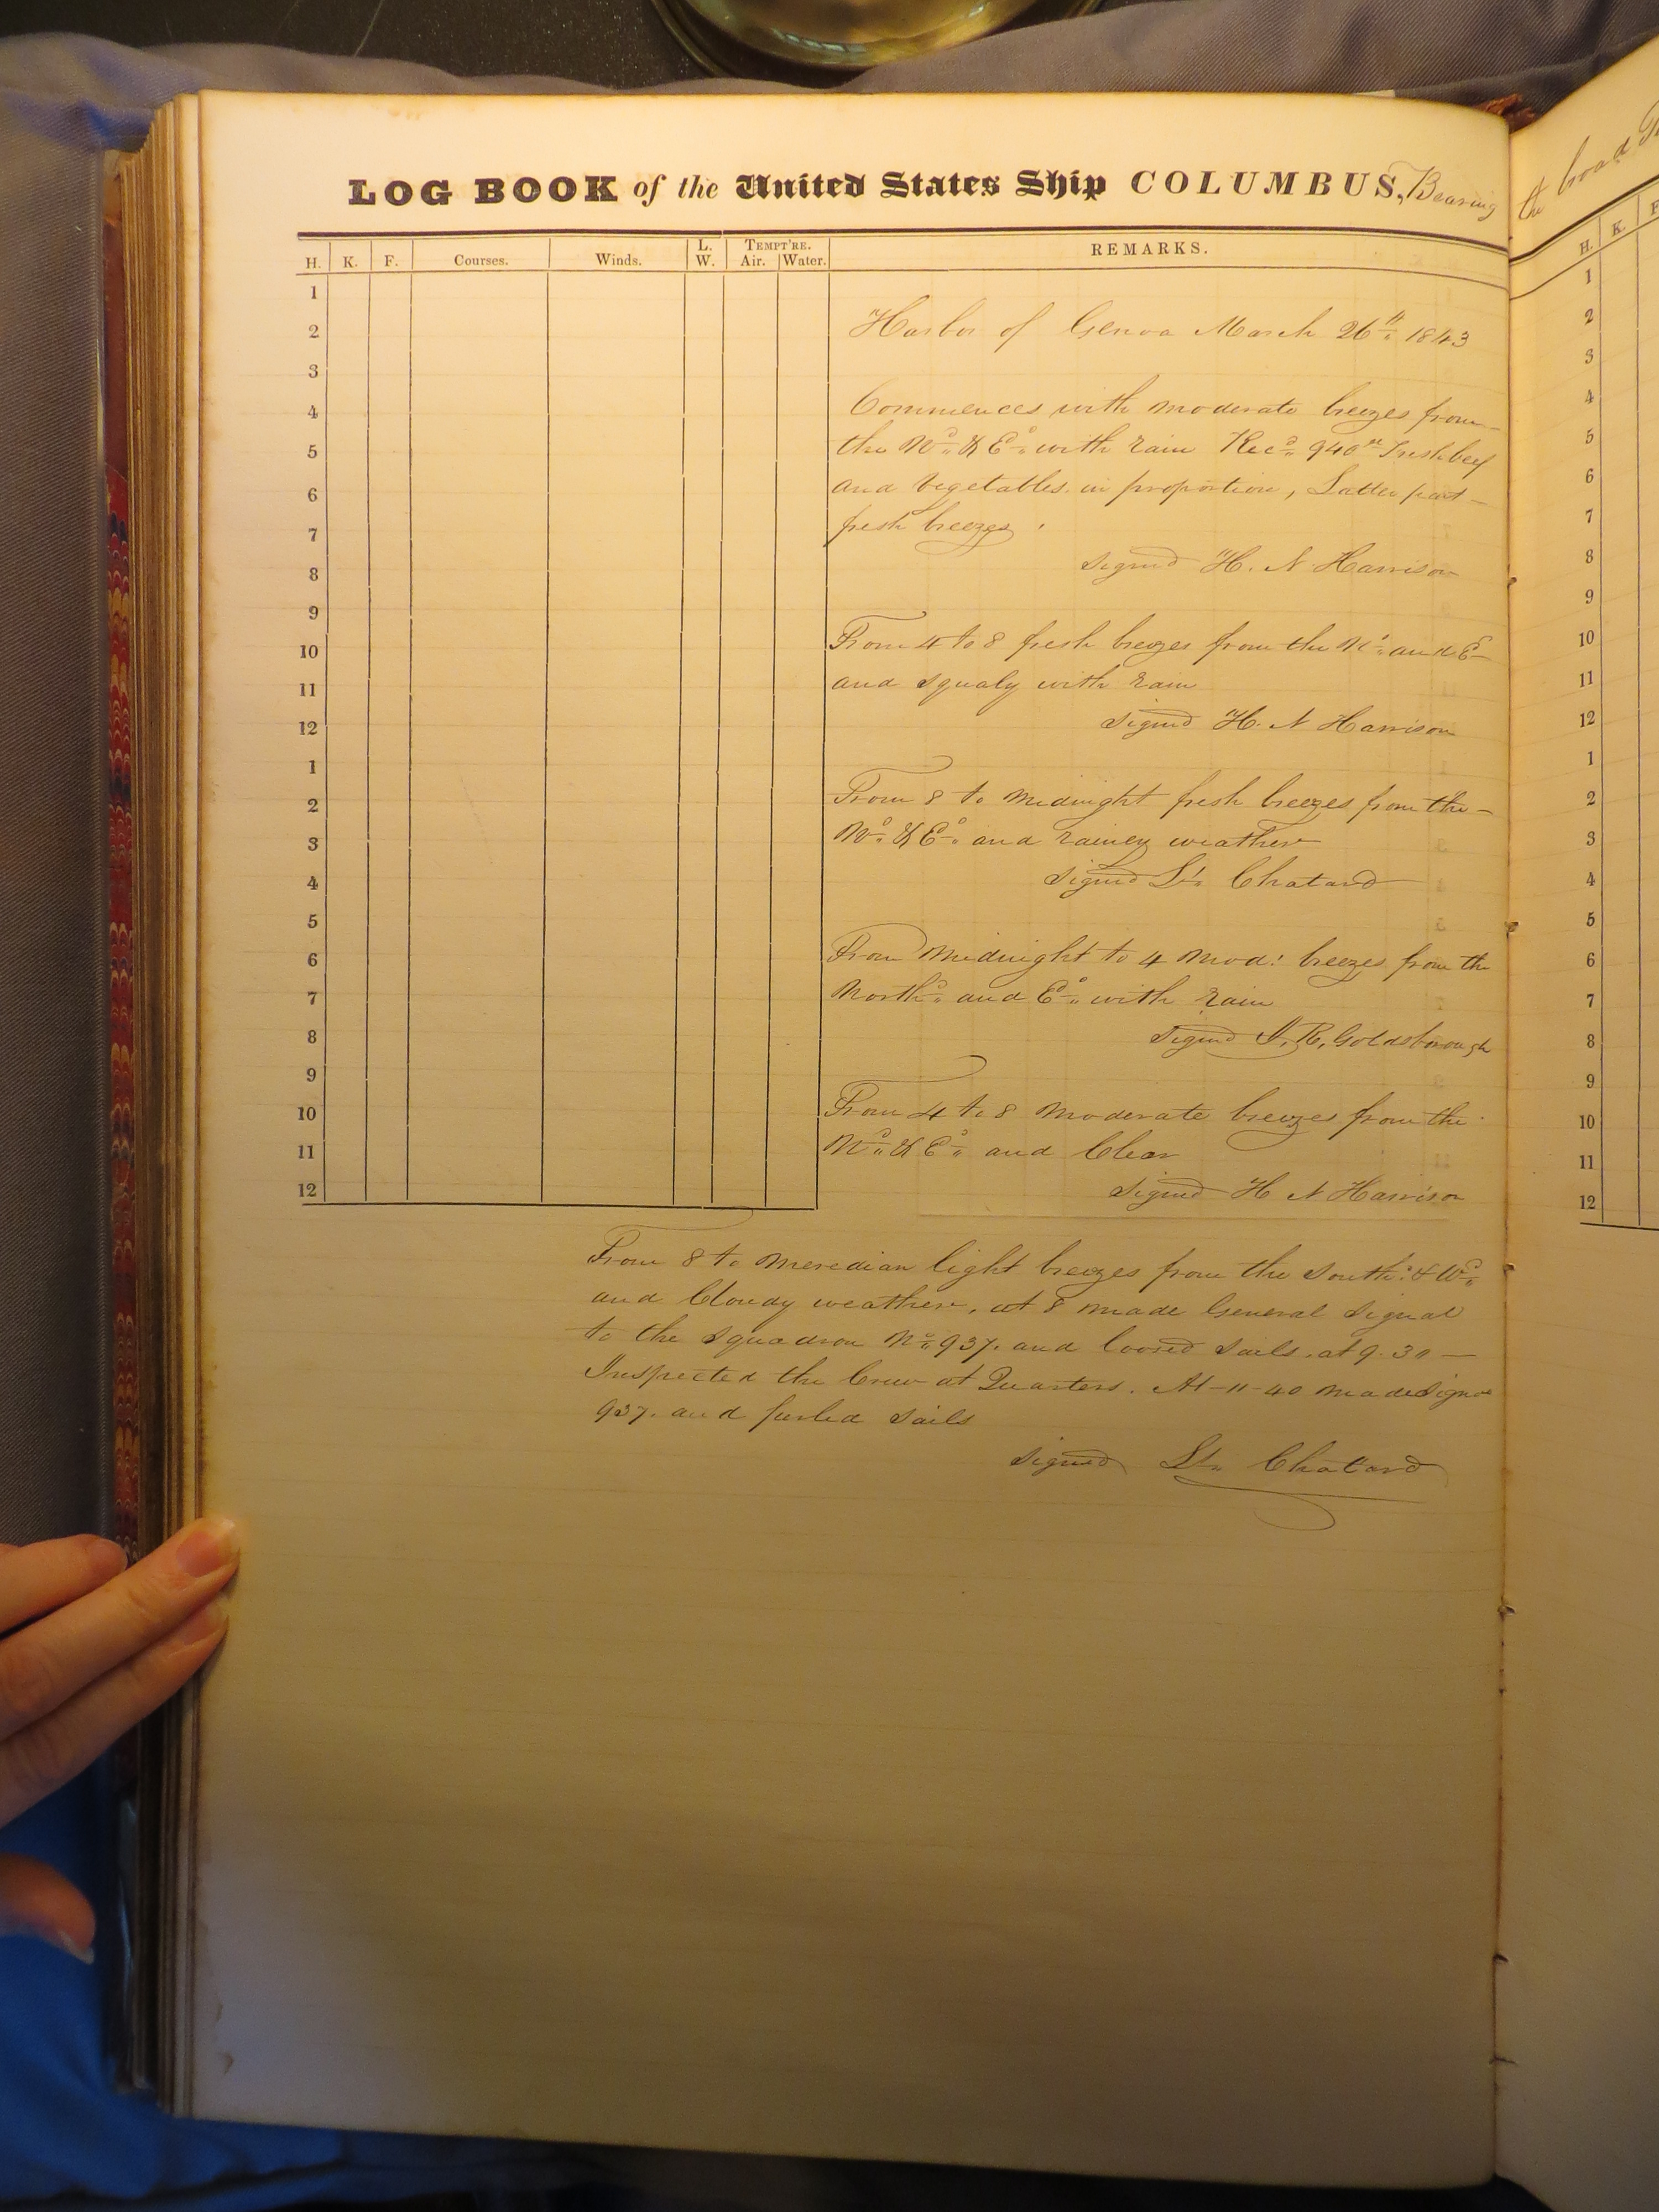 LOG BOOK of the United States Ship COLUMBUS, Bearing
H. K. F. Courses. Winds. L. W. TEMPT'RE. Air. Water. REMARKS.
1
2
3
4
5
6
7
8
9
10
11
12
1
2
3
4
5
6
7
8
9
10
11
12
Harbor of Genoa March 26th 1843
Commences with moderate breezes from
the Nd & Ed with rain Recd 940 Fresh beef
and vegetables in proportion, Latter part
fresh breezes.
Signed H. N. Harrison
From 4 to 8 fresh breezes from the Nd and E
and squaly with rain
Signed H. N Harrison
From 8 to Midnight fresh breezes from the
Nd & Ed and rainey weather
Signed Lt. Chatard
From Midnight to 4 Mod: breezes from the
Northd and Ed with rain
Signed J. R. Goldsborough
From 4 to 8 Moderate breezes from the
Nd & Ed and Clear
Signed H N Harrison
From 8 to Meredian light breezes from the South: & Wd
and Cloudy weather, at 8 made General Signal
to the Squadron No 937. and loosed Sails. at 9.30
Inspected the Crew at Quarters. At 11-40 made Signal
937. and furled Sails
Signed Lt. Chatard
the broad
H. K.
1
2
3
4
5
6
7
8
9
10
11
12
1
2
3
4
5
6
7
8
9
10
11
12